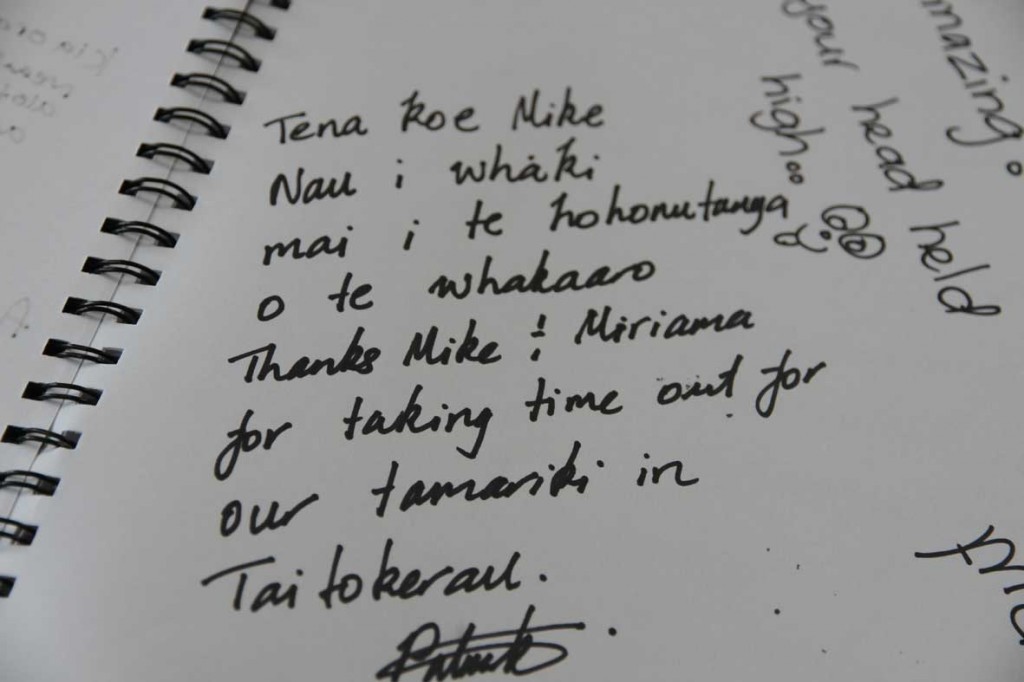 Tena koe Mike
Nau i whaki
mai i te hohonutanga
o te whakaaro
Thanks Mike & Miriama
for taking time out for
our tamariki in
Taitokerau.
mazing.
your head held
high..